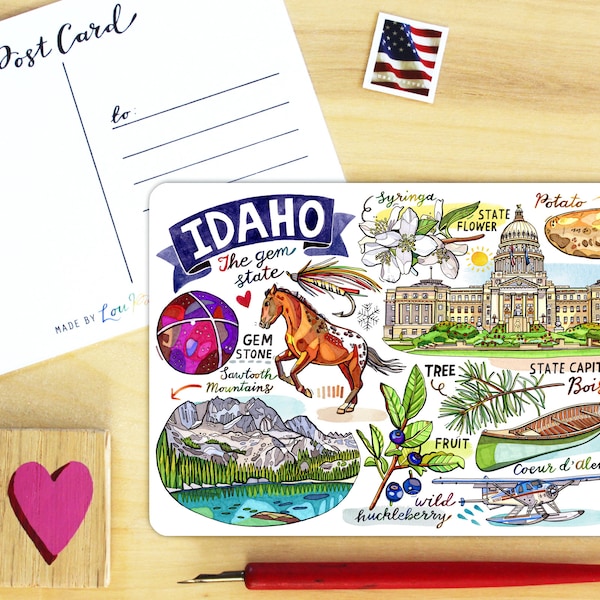 Post Card
to:
MADE BY
IDAHO
The gem
state
Syringa
STATE
FLOWER
Potato
GEM
STONE
Sawtooth
Mountains
TREE
STATE CAPIT
Bois
FRUIT
wild
huckleberry
Coeur d'Alen